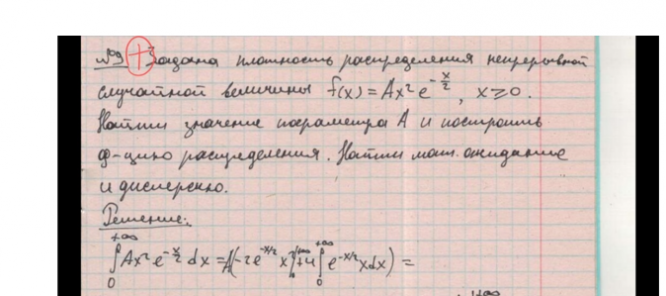 №9 + Задана плотность распределения непрерывной
случайной величины f(x) = Ax² e^{-x/2}, x ≥ 0.
Найти значение параметра A и построить
ф-цию распределения. Найти мат. ожидание
и дисперсию.
Решение:
∫₀^{+∞} Ax² e^{-x/2} dx = A(-2e^{-x/2} x²|₀^{+∞} + 4 ∫₀^{+∞} e^{-x/2} x dx) =